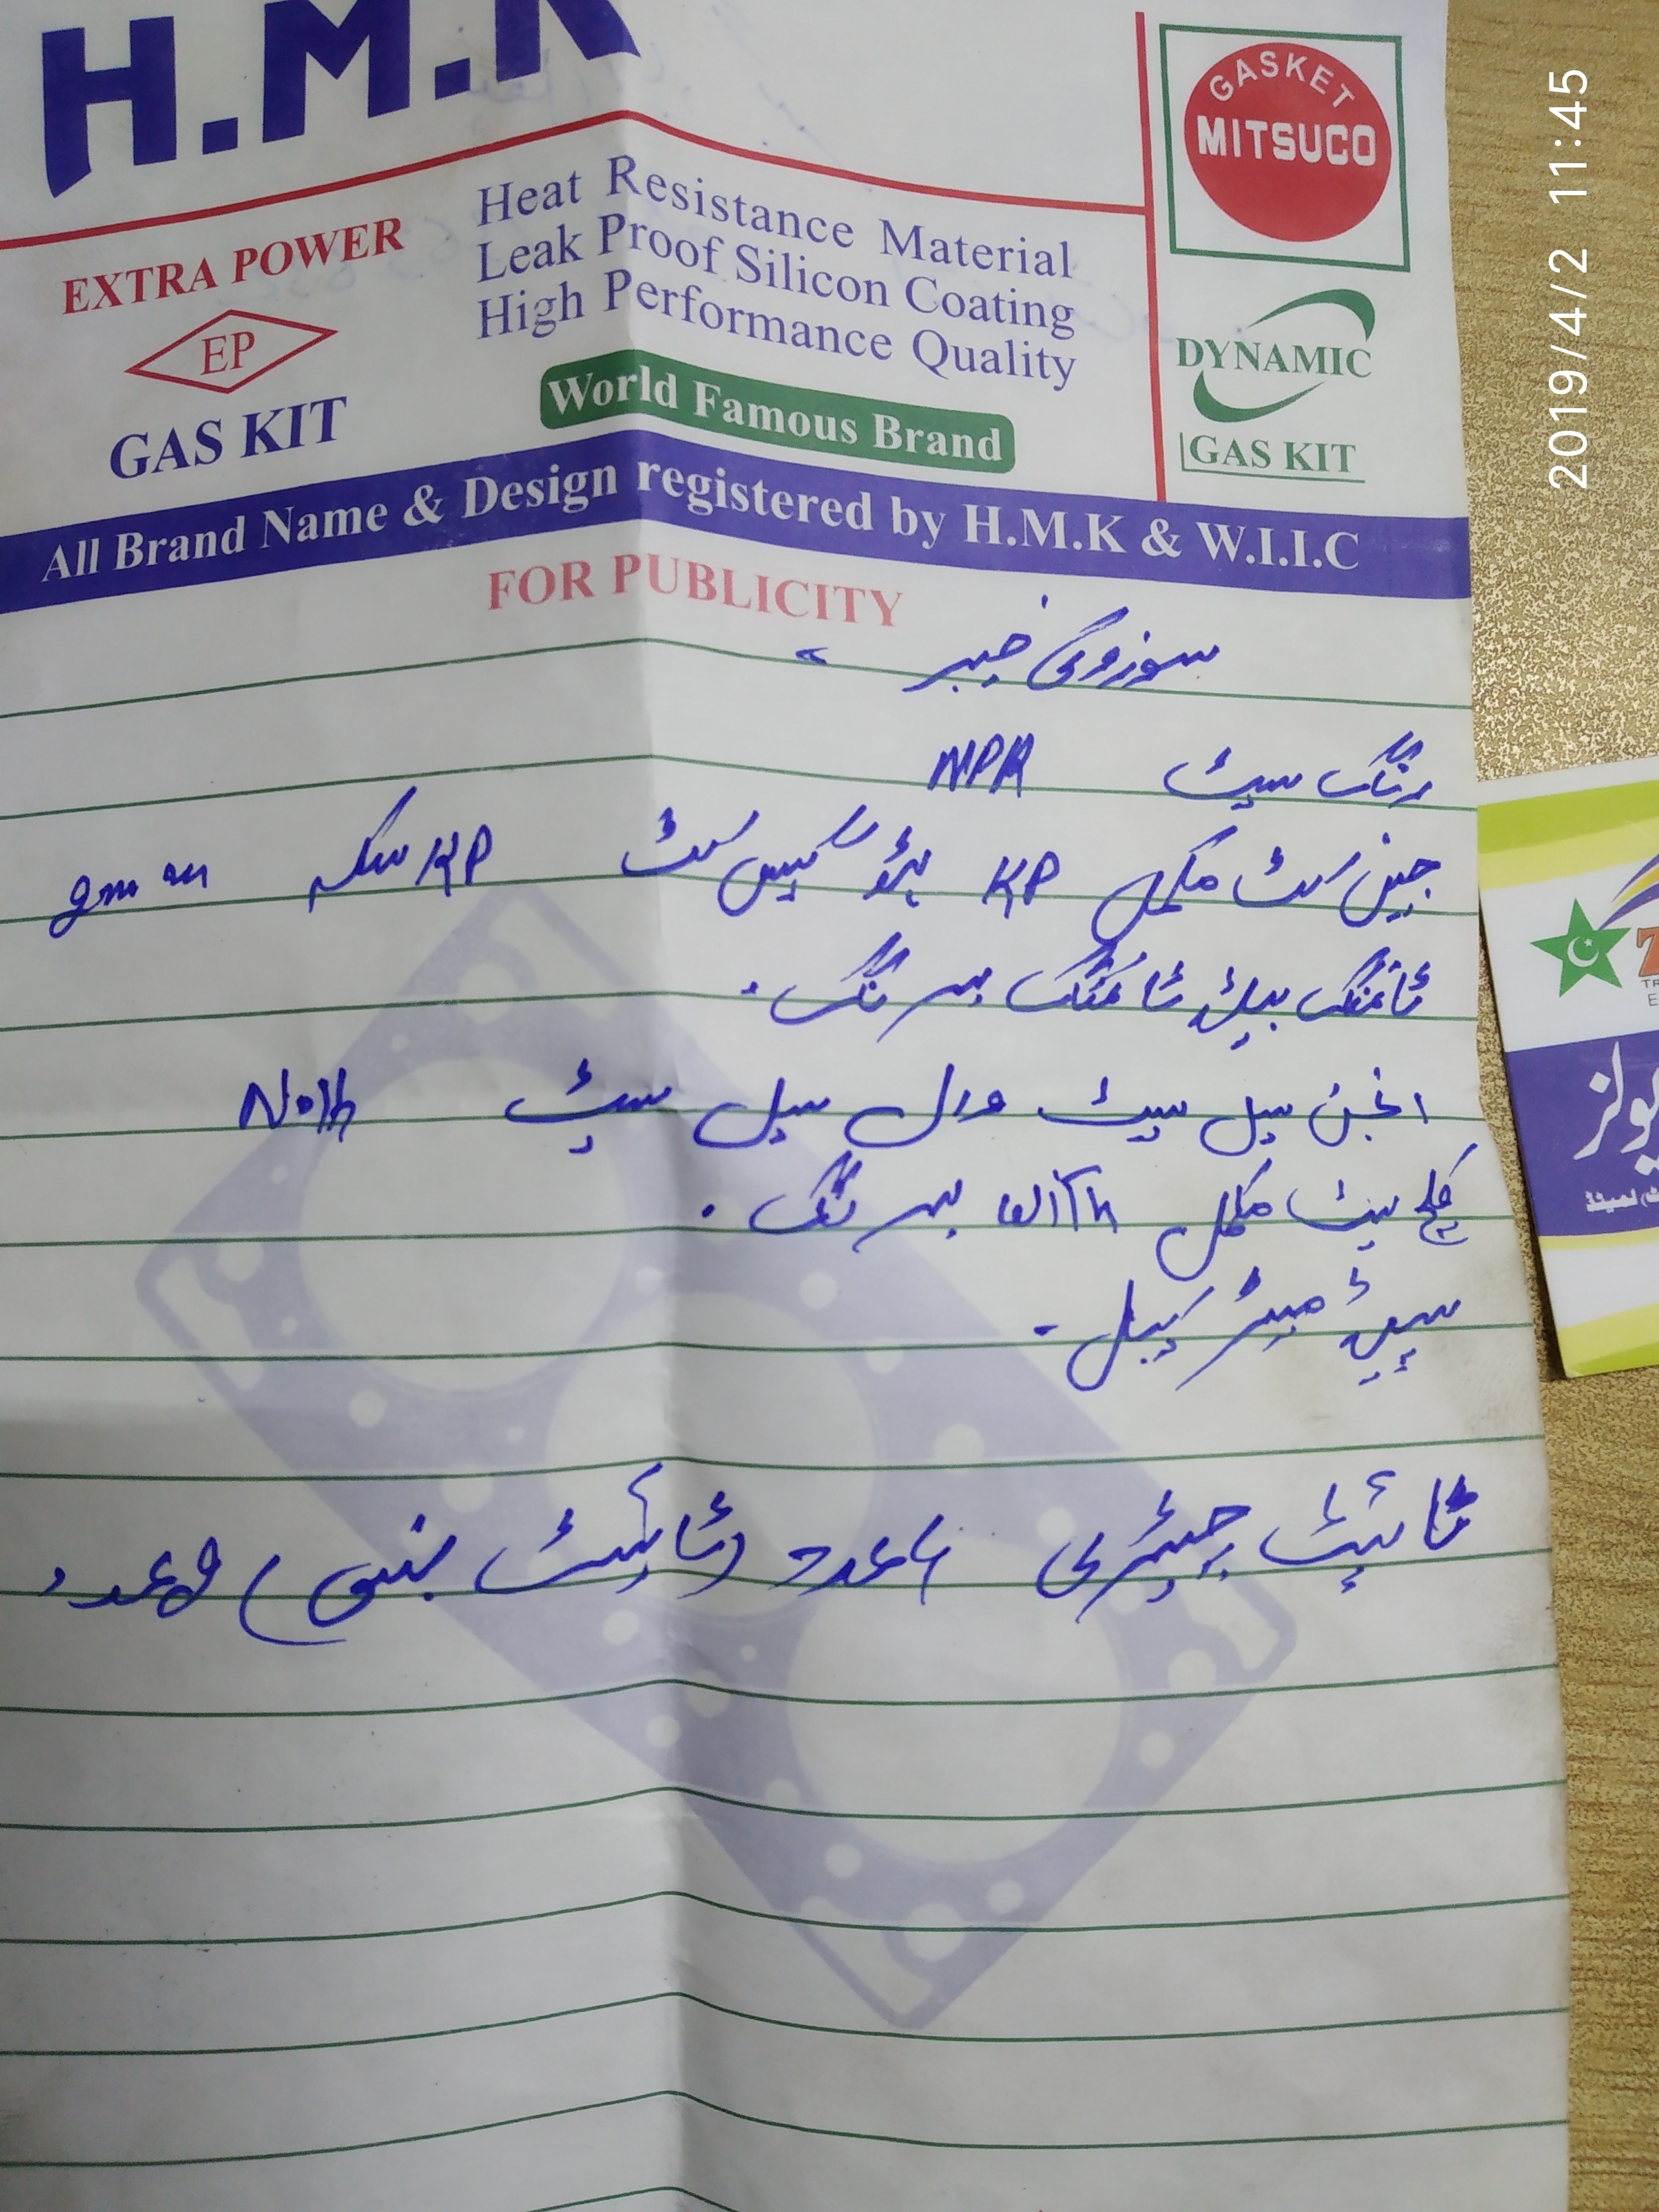 H.M.K
GASKET
MITSUCO
EXTRA POWER
EP
GAS KIT
Heat Resistance Material
Leak Proof Silicon Coating
High Performance Quality
World Famous Brand
DYNAMIC
GAS KIT
All Brand Name & Design registered by H.M.K & W.I.I.C
FOR PUBLICITY
سوزوکی خیبر
رنگ سیٹ NPR
جین سٹ مکمل KP ہیڈ گیس کٹ KP
ٹائمنگ بیلٹ ٹائمنگ بیرنگ.
انجن سیل سیٹ وال سیل سیٹ Nok
کلچ سیٹ مکمل بیرنگ.
سپیڈ میٹر کیبل -
عدد عدد
2019/4/2 11:45